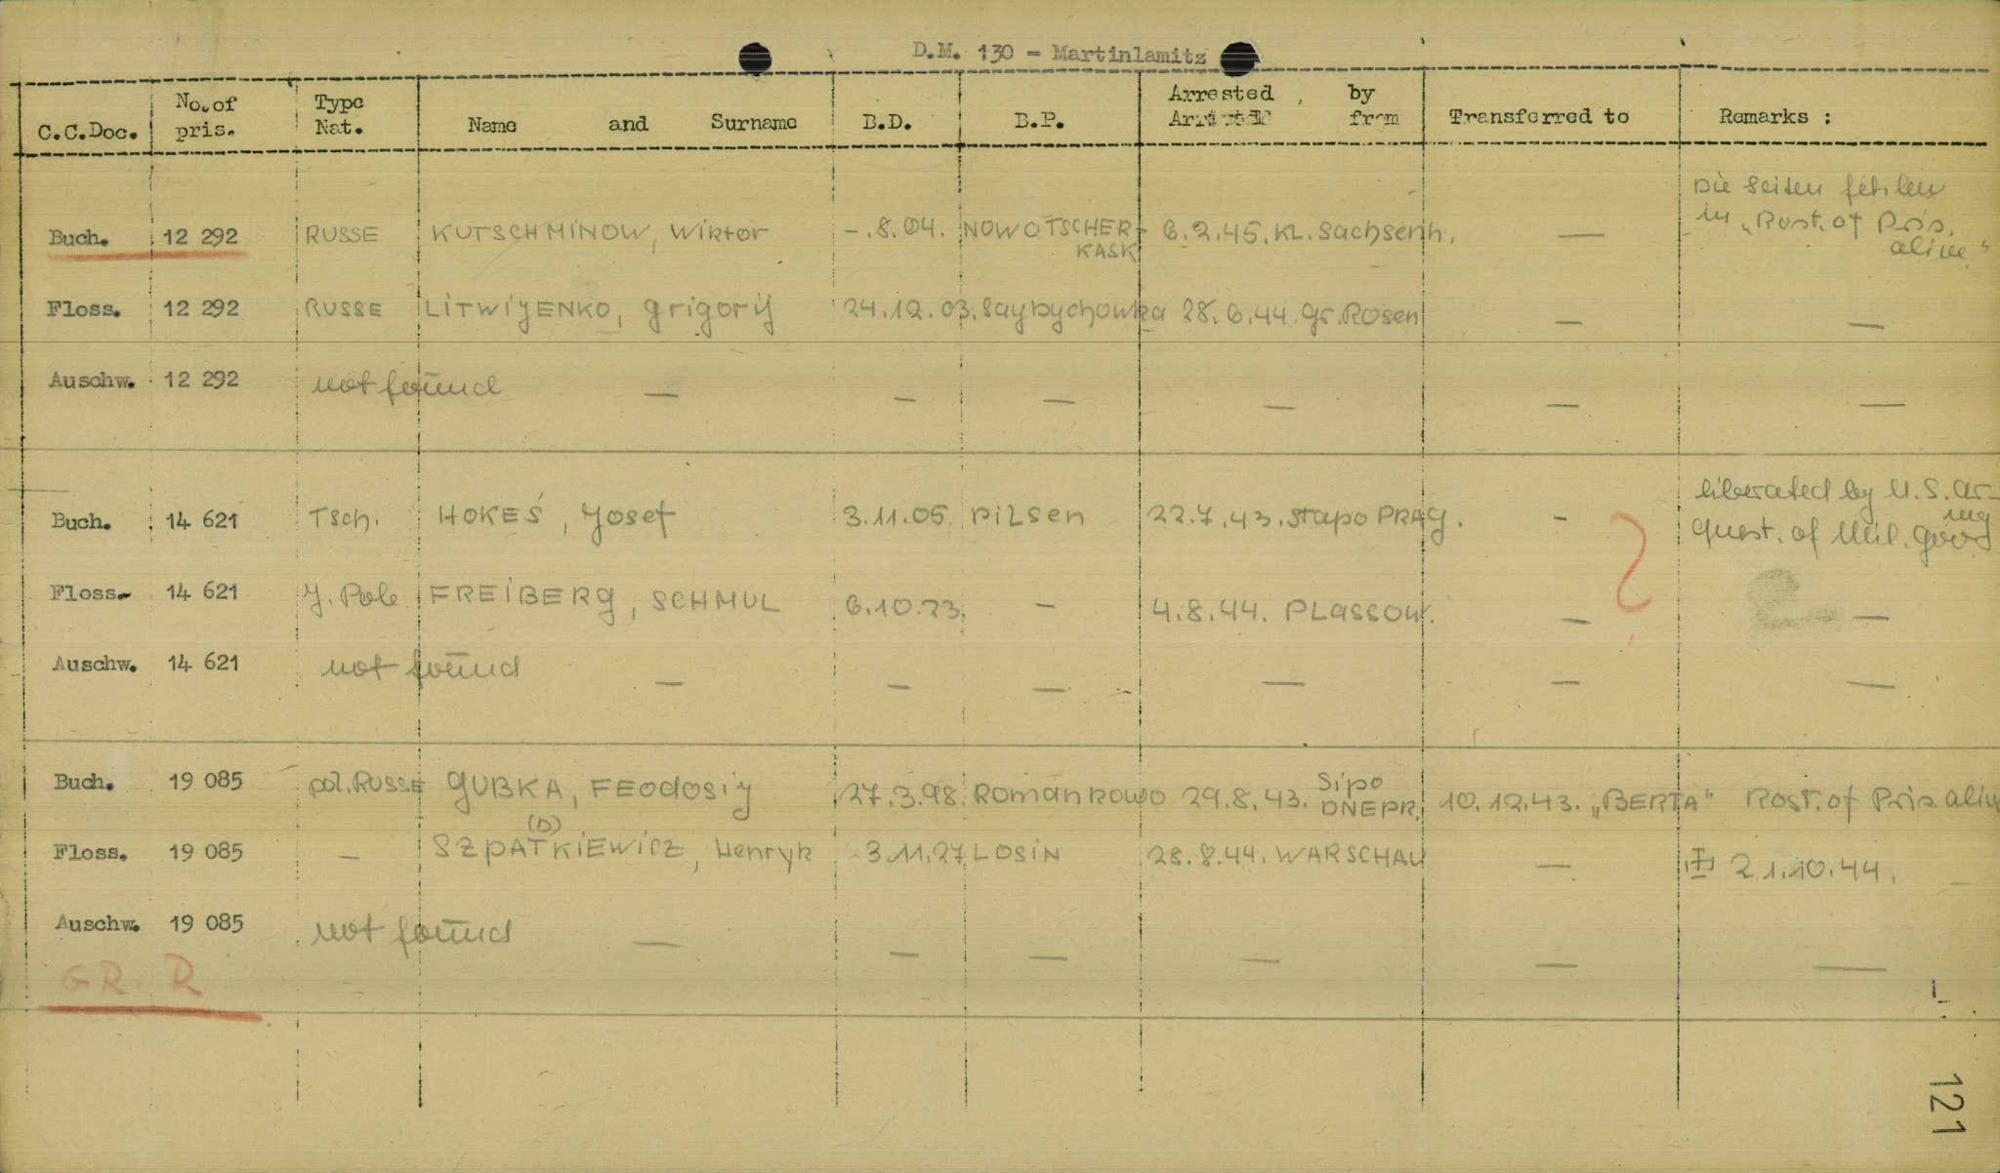 D.M. 130 - Martinlamitz
C.C.Doc. No. of pris. Type Nat. Name and Surname B.D. B.P. Arrested, by Arrived from Transferred to Remarks :
Buch. 12 292 RUSSE KUTSCHMINOW, Wiktor -.8.04. NOWOTSCHER-KASK 6.2.45. KL. Sachsenh. — Die Seiten fehlen in „Rost. of Pris. alive"
Floss. 12 292 RUSSE LITWIJENKO, Grigorij 24.12.03. Saybychowka 28.6.44. Gr. Rosen — —
Auschw. 12 292 not found — — — — — —
Buch. 14 621 Tsch. HOKEŚ, Josef 3.11.05 Pilsen 22.7.43. Stapo PRAG. - liberated by U.S. Army Quest. of Mil. Gov.
Floss. 14 621 J. Pole FREIBERG, SCHMUL 6.10.23. — 4.8.44. PLASSOW. — —
Auschw. 14 621 not found — — — — — —
Buch. 19 085 pol. RUSSE GUBKA, FEodosiy 27.3.98. Romankowo 29.8.43. Sipo DNEPR. 10.12.43. „BERTA" Rost. of Pris. aliv
Floss. 19 085 — SZPATKIEWICZ, Henryk (D) 3.11.27 LOSIN 28.8.44. WARSCHAU — 21.10.44. —
Auschw. 19 085 not found — — — — — —
GR. R
121